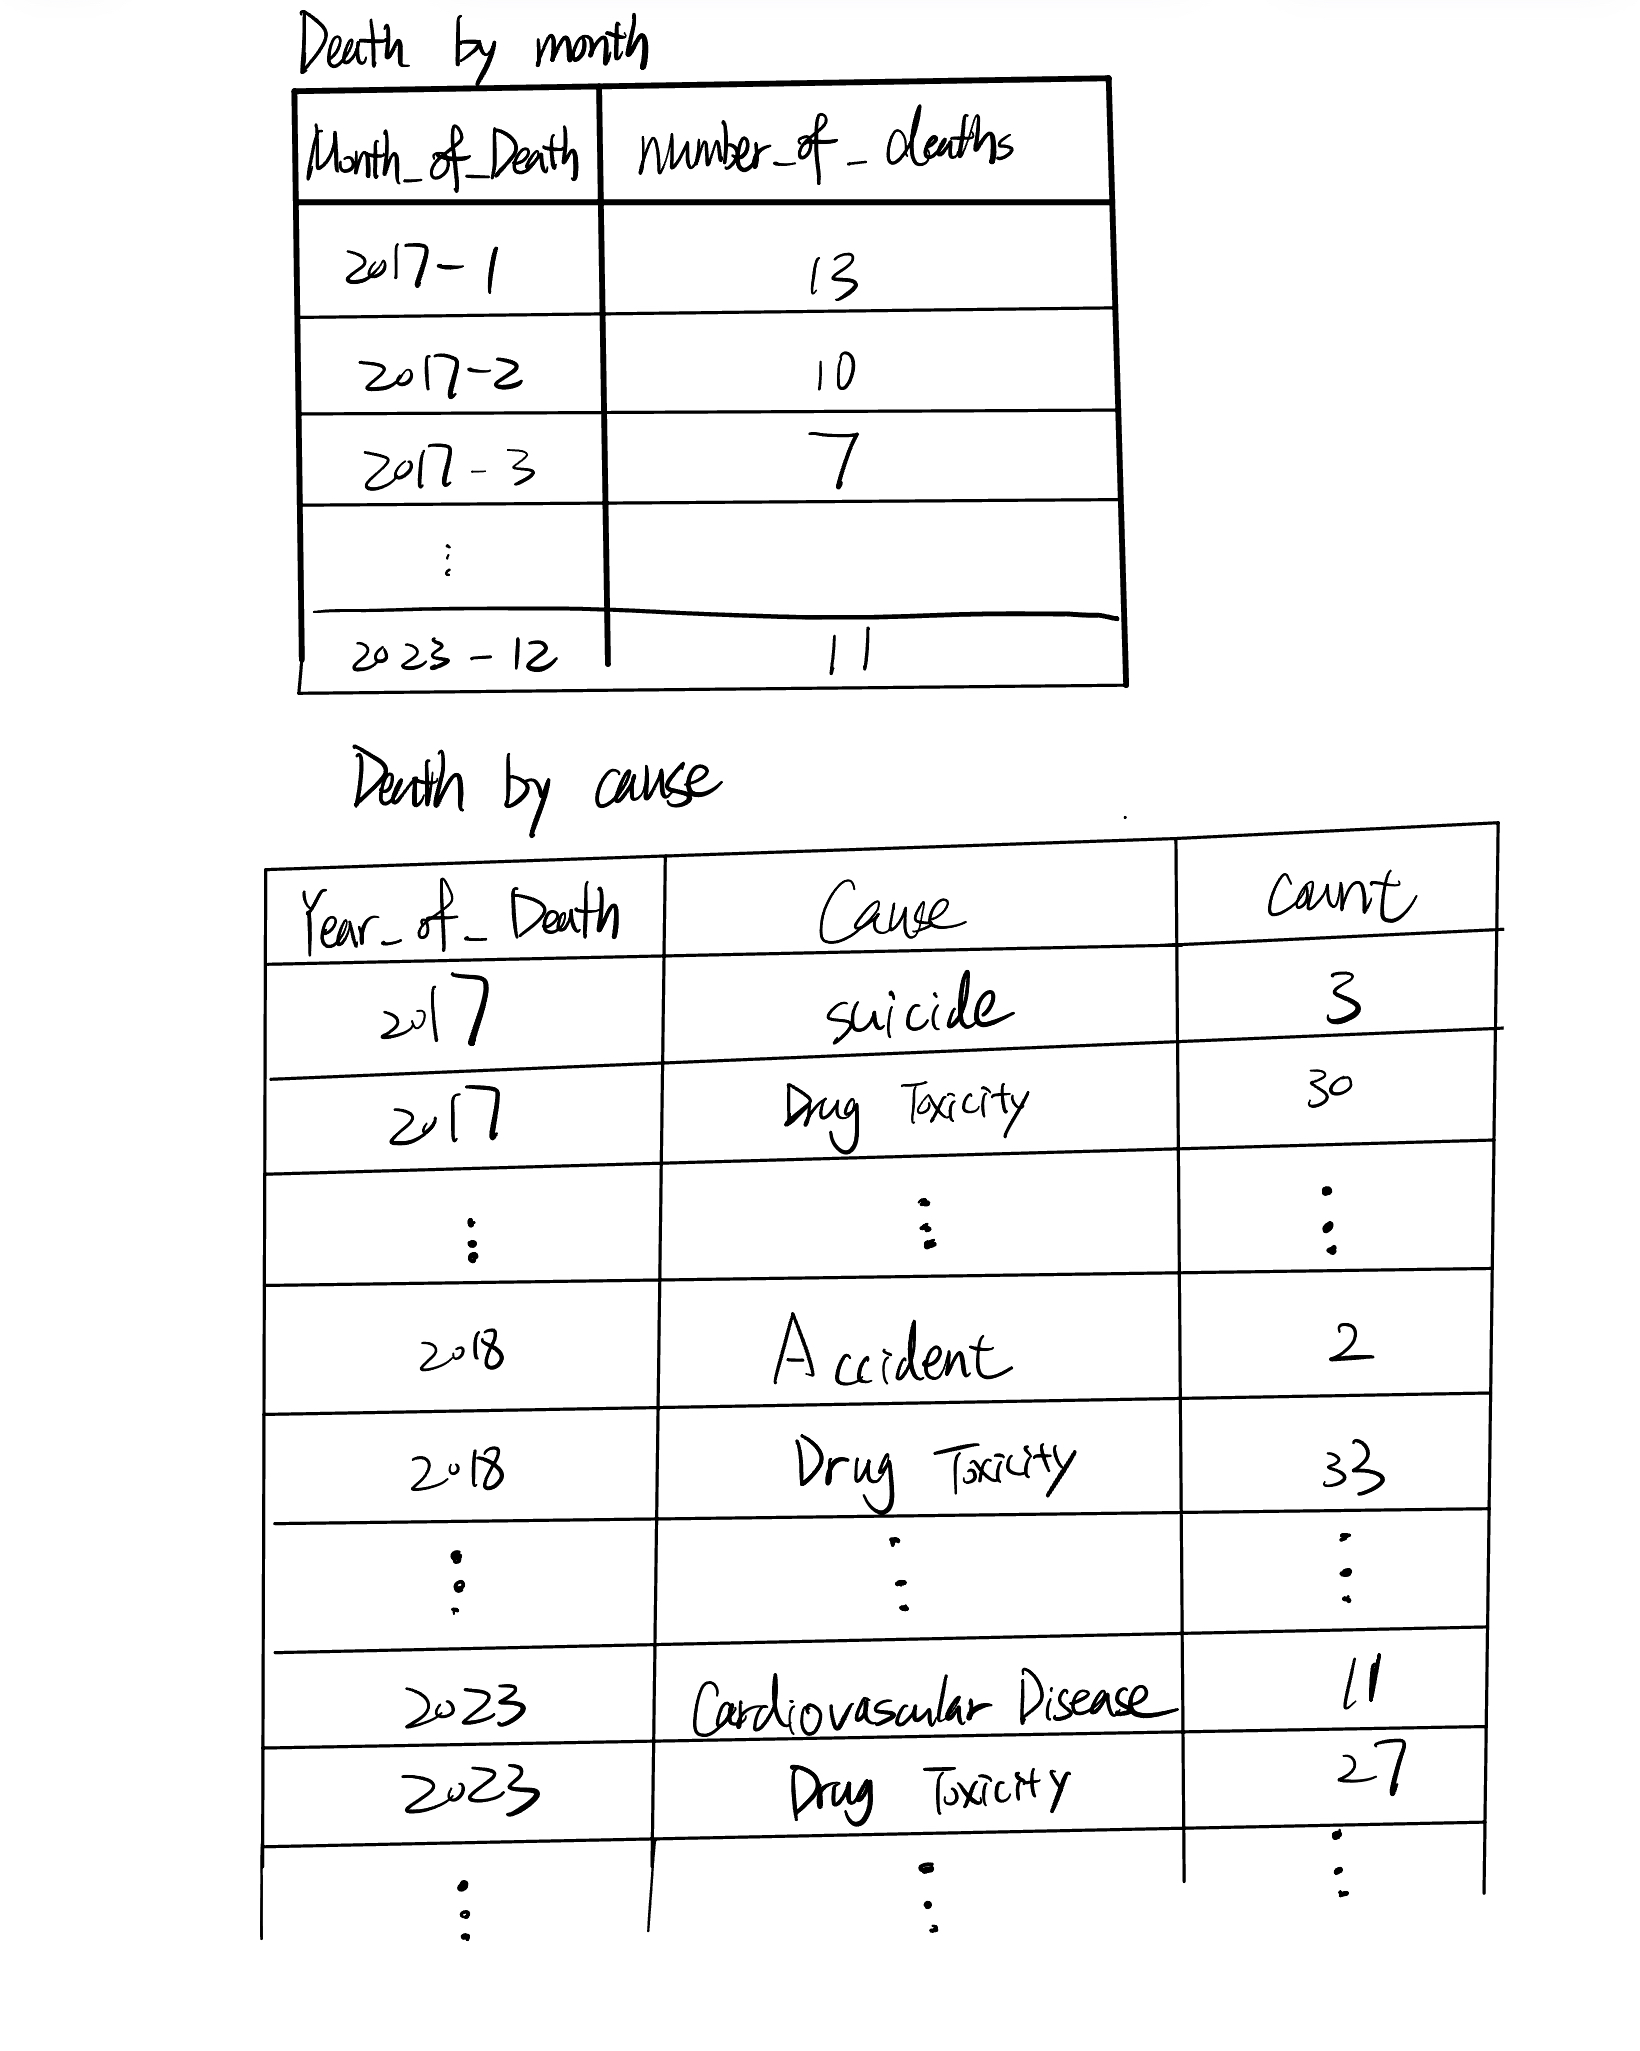 Death by month
Month_of_Death number_of_deaths
2017-1 13
2017-2 10
2017-3 7
⋮
2023-12 11
Death by cause
Year_of_Death Cause Count
2017 suicide 3
2017 Drug Toxicity 30
⋮ ⋮ ⋮
2018 Accident 2
2018 Drug Toxicity 33
⋮ ⋮ ⋮
2023 Cardiovascular Disease 11
2023 Drug Toxicity 27
⋮ ⋮ ⋮